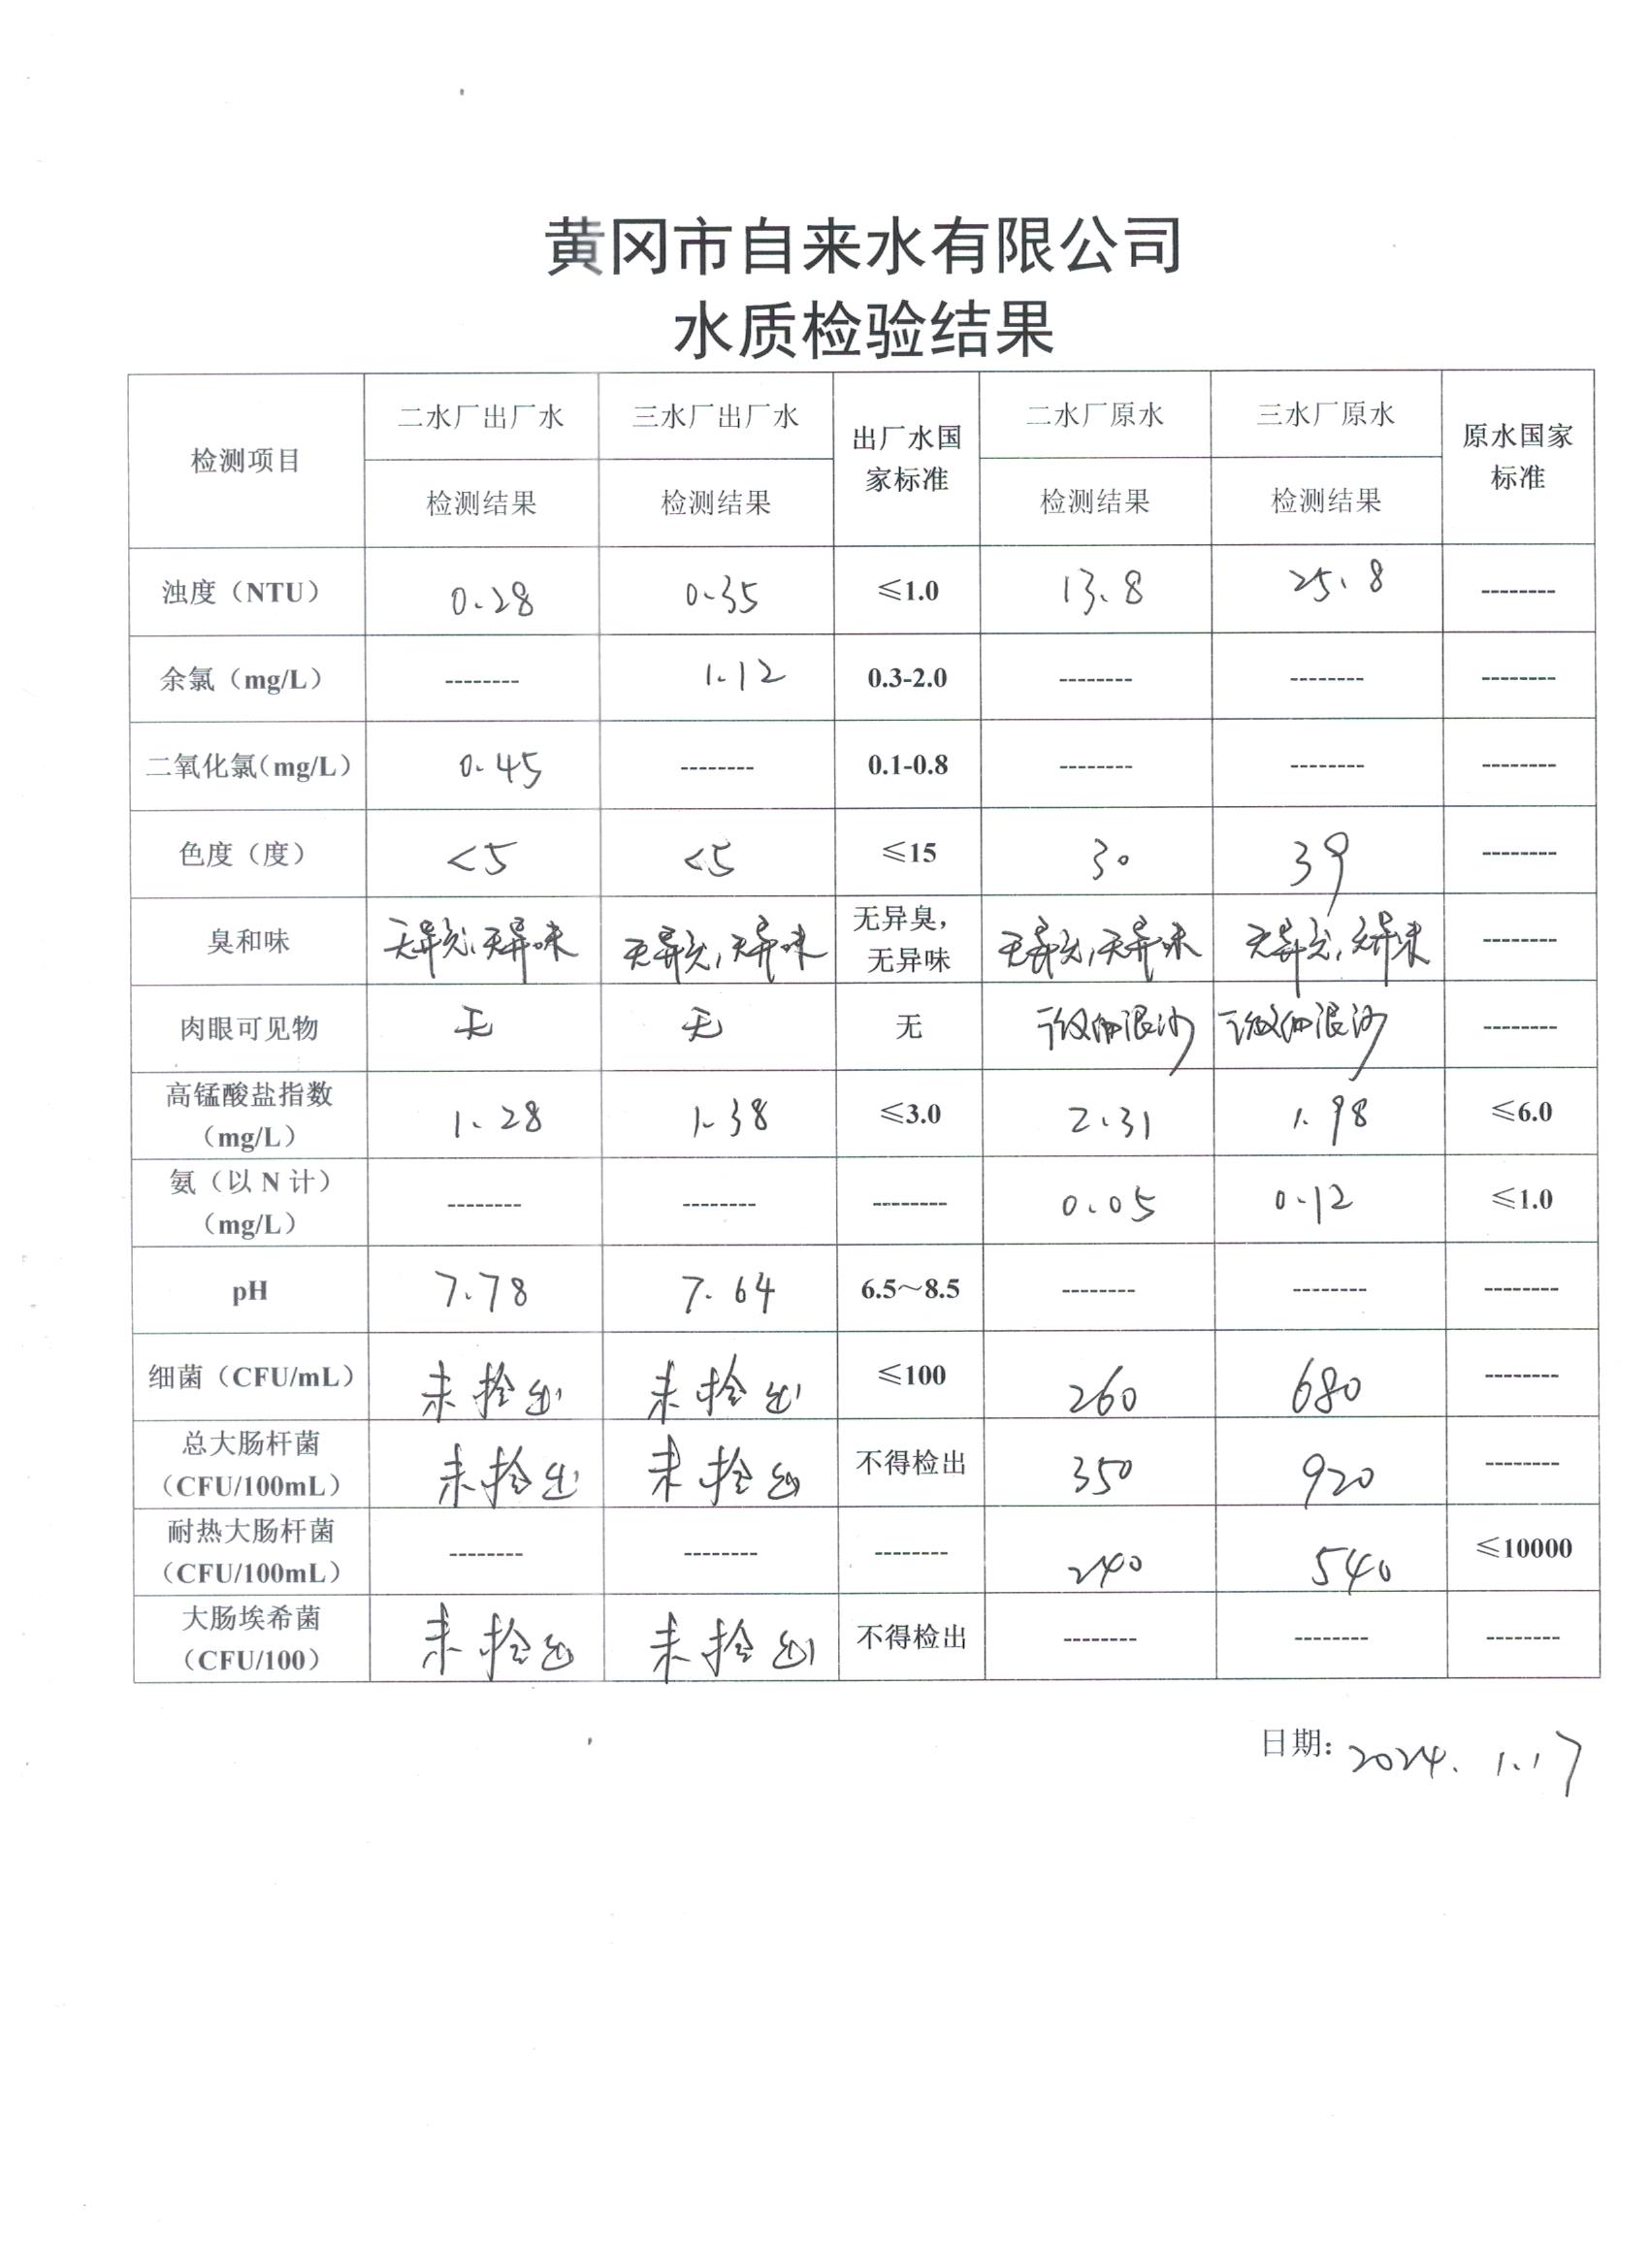 黄冈市自来水有限公司
水质检验结果
检测项目 二水厂出厂水 三水厂出厂水 出厂水国家标准 二水厂原水 三水厂原水 原水国家标准
检测结果 检测结果 检测结果 检测结果
浊度（NTU） 0.28 0.35 ≤1.0 13.8 25.8 --------
余氯（mg/L） -------- 1.12 0.3-2.0 -------- -------- --------
二氧化氯（mg/L） 0.45 -------- 0.1-0.8 -------- -------- --------
色度（度） <5 <5 ≤15 30 39 --------
臭和味 无异臭,无异味 无异臭,无异味 无异臭，无异味 无异臭,无异味 无异臭,无异味 --------
肉眼可见物 无 无 无 微细泥沙 微细泥沙 --------
高锰酸盐指数（mg/L） 1.28 1.38 ≤3.0 2.31 1.98 ≤6.0
氨（以 N 计）（mg/L） -------- -------- -------- 0.05 0.12 ≤1.0
pH 7.78 7.64 6.5～8.5 -------- -------- --------
细菌（CFU/mL） 未检出 未检出 ≤100 260 680 --------
总大肠杆菌（CFU/100mL） 未检出 未检出 不得检出 350 920 --------
耐热大肠杆菌（CFU/100mL） -------- -------- -------- 240 540 ≤10000
大肠埃希菌（CFU/100） 未检出 未检出 不得检出 -------- -------- --------
日期: 2024.1.17